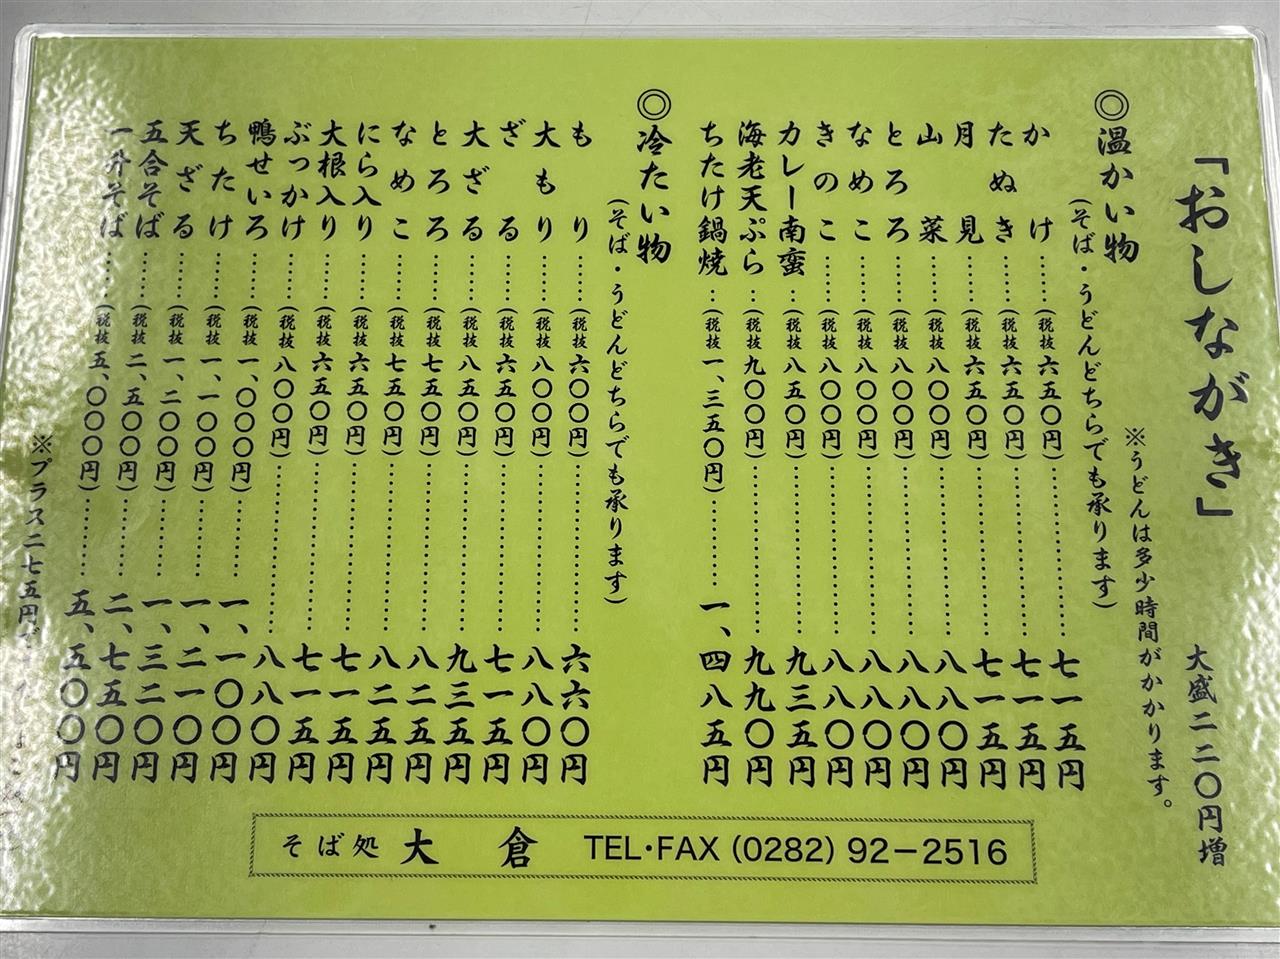 「おしながき」
大盛二二〇円増
※うどんは多少時間がかかります。
◎温かい物
(そば・うどんどちらでも承ります)
かけ……(税抜 六五〇円)……七一五円
たぬき……(税抜 六五〇円)……七一五円
月見……(税抜 六五〇円)……七一五円
山菜……(税抜 八〇〇円)……八八〇円
とろろ……(税抜 八〇〇円)……八八〇円
なめこ……(税抜 八〇〇円)……八八〇円
きのこ……(税抜 八〇〇円)……八八〇円
カレー南蛮…(税抜 八五〇円)……九三五円
海老天ぷら…(税抜 九〇〇円)……九九〇円
ちたけ鍋焼…(税抜 一、三五〇円)……一、四八五円
◎冷たい物
(そば・うどんどちらでも承ります)
もり……(税抜 六〇〇円)……六六〇円
大もり……(税抜 八〇〇円)……八八〇円
ざる……(税抜 六五〇円)……七一五円
大ざる……(税抜 八五〇円)……九三五円
とろろ……(税抜 七五〇円)……八二五円
なめこ……(税抜 七五〇円)……八二五円
にら入り……(税抜 六五〇円)……七一五円
大根入り……(税抜 六五〇円)……七一五円
ぶっかけ……(税抜 八〇〇円)……八八〇円
鴨せいろ……(税抜 一、〇〇〇円)……一、一〇〇円
ちたけ……(税抜 一、一〇〇円)……一、二一〇円
天ざる……(税抜 一、二〇〇円)……一、三二〇円
五合そば……(税抜 二、五〇〇円)……二、七五〇円
一升そば……(税抜 五、〇〇〇円)……五、五〇〇円
※プラス二七五円で
そば処 大倉 TEL・FAX (0282) 92-2516